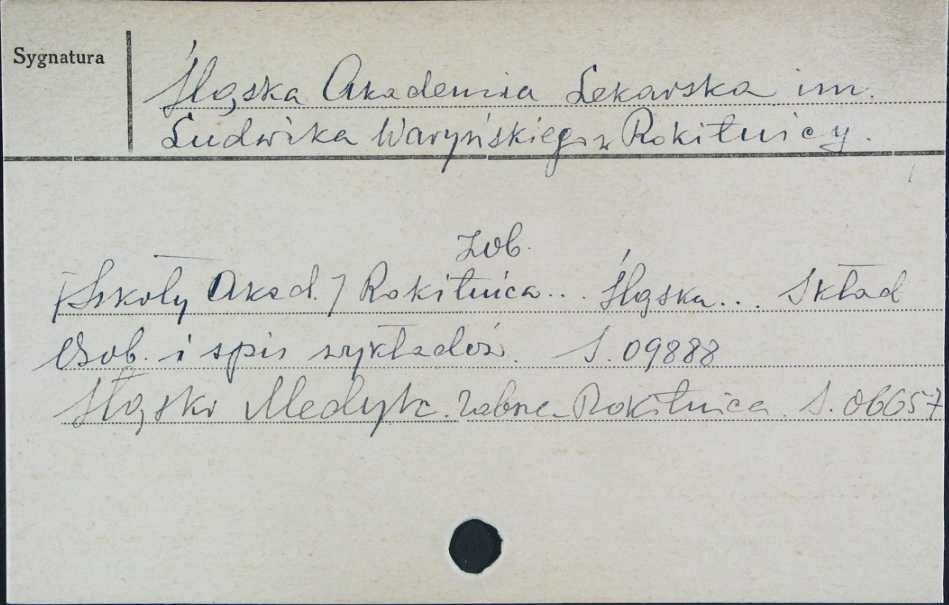 Sygnatura
Śląska Akademia Lekarska im.
Ludwika Waryńskiego w Rokitnicy.
Zob.
[Szkoły Akad.] Rokitnica... Śląska... Skład
Osob. i spis wykładów. S. 09888
Śląski Medyk. Zabrze-Rokitnica. S. 06657